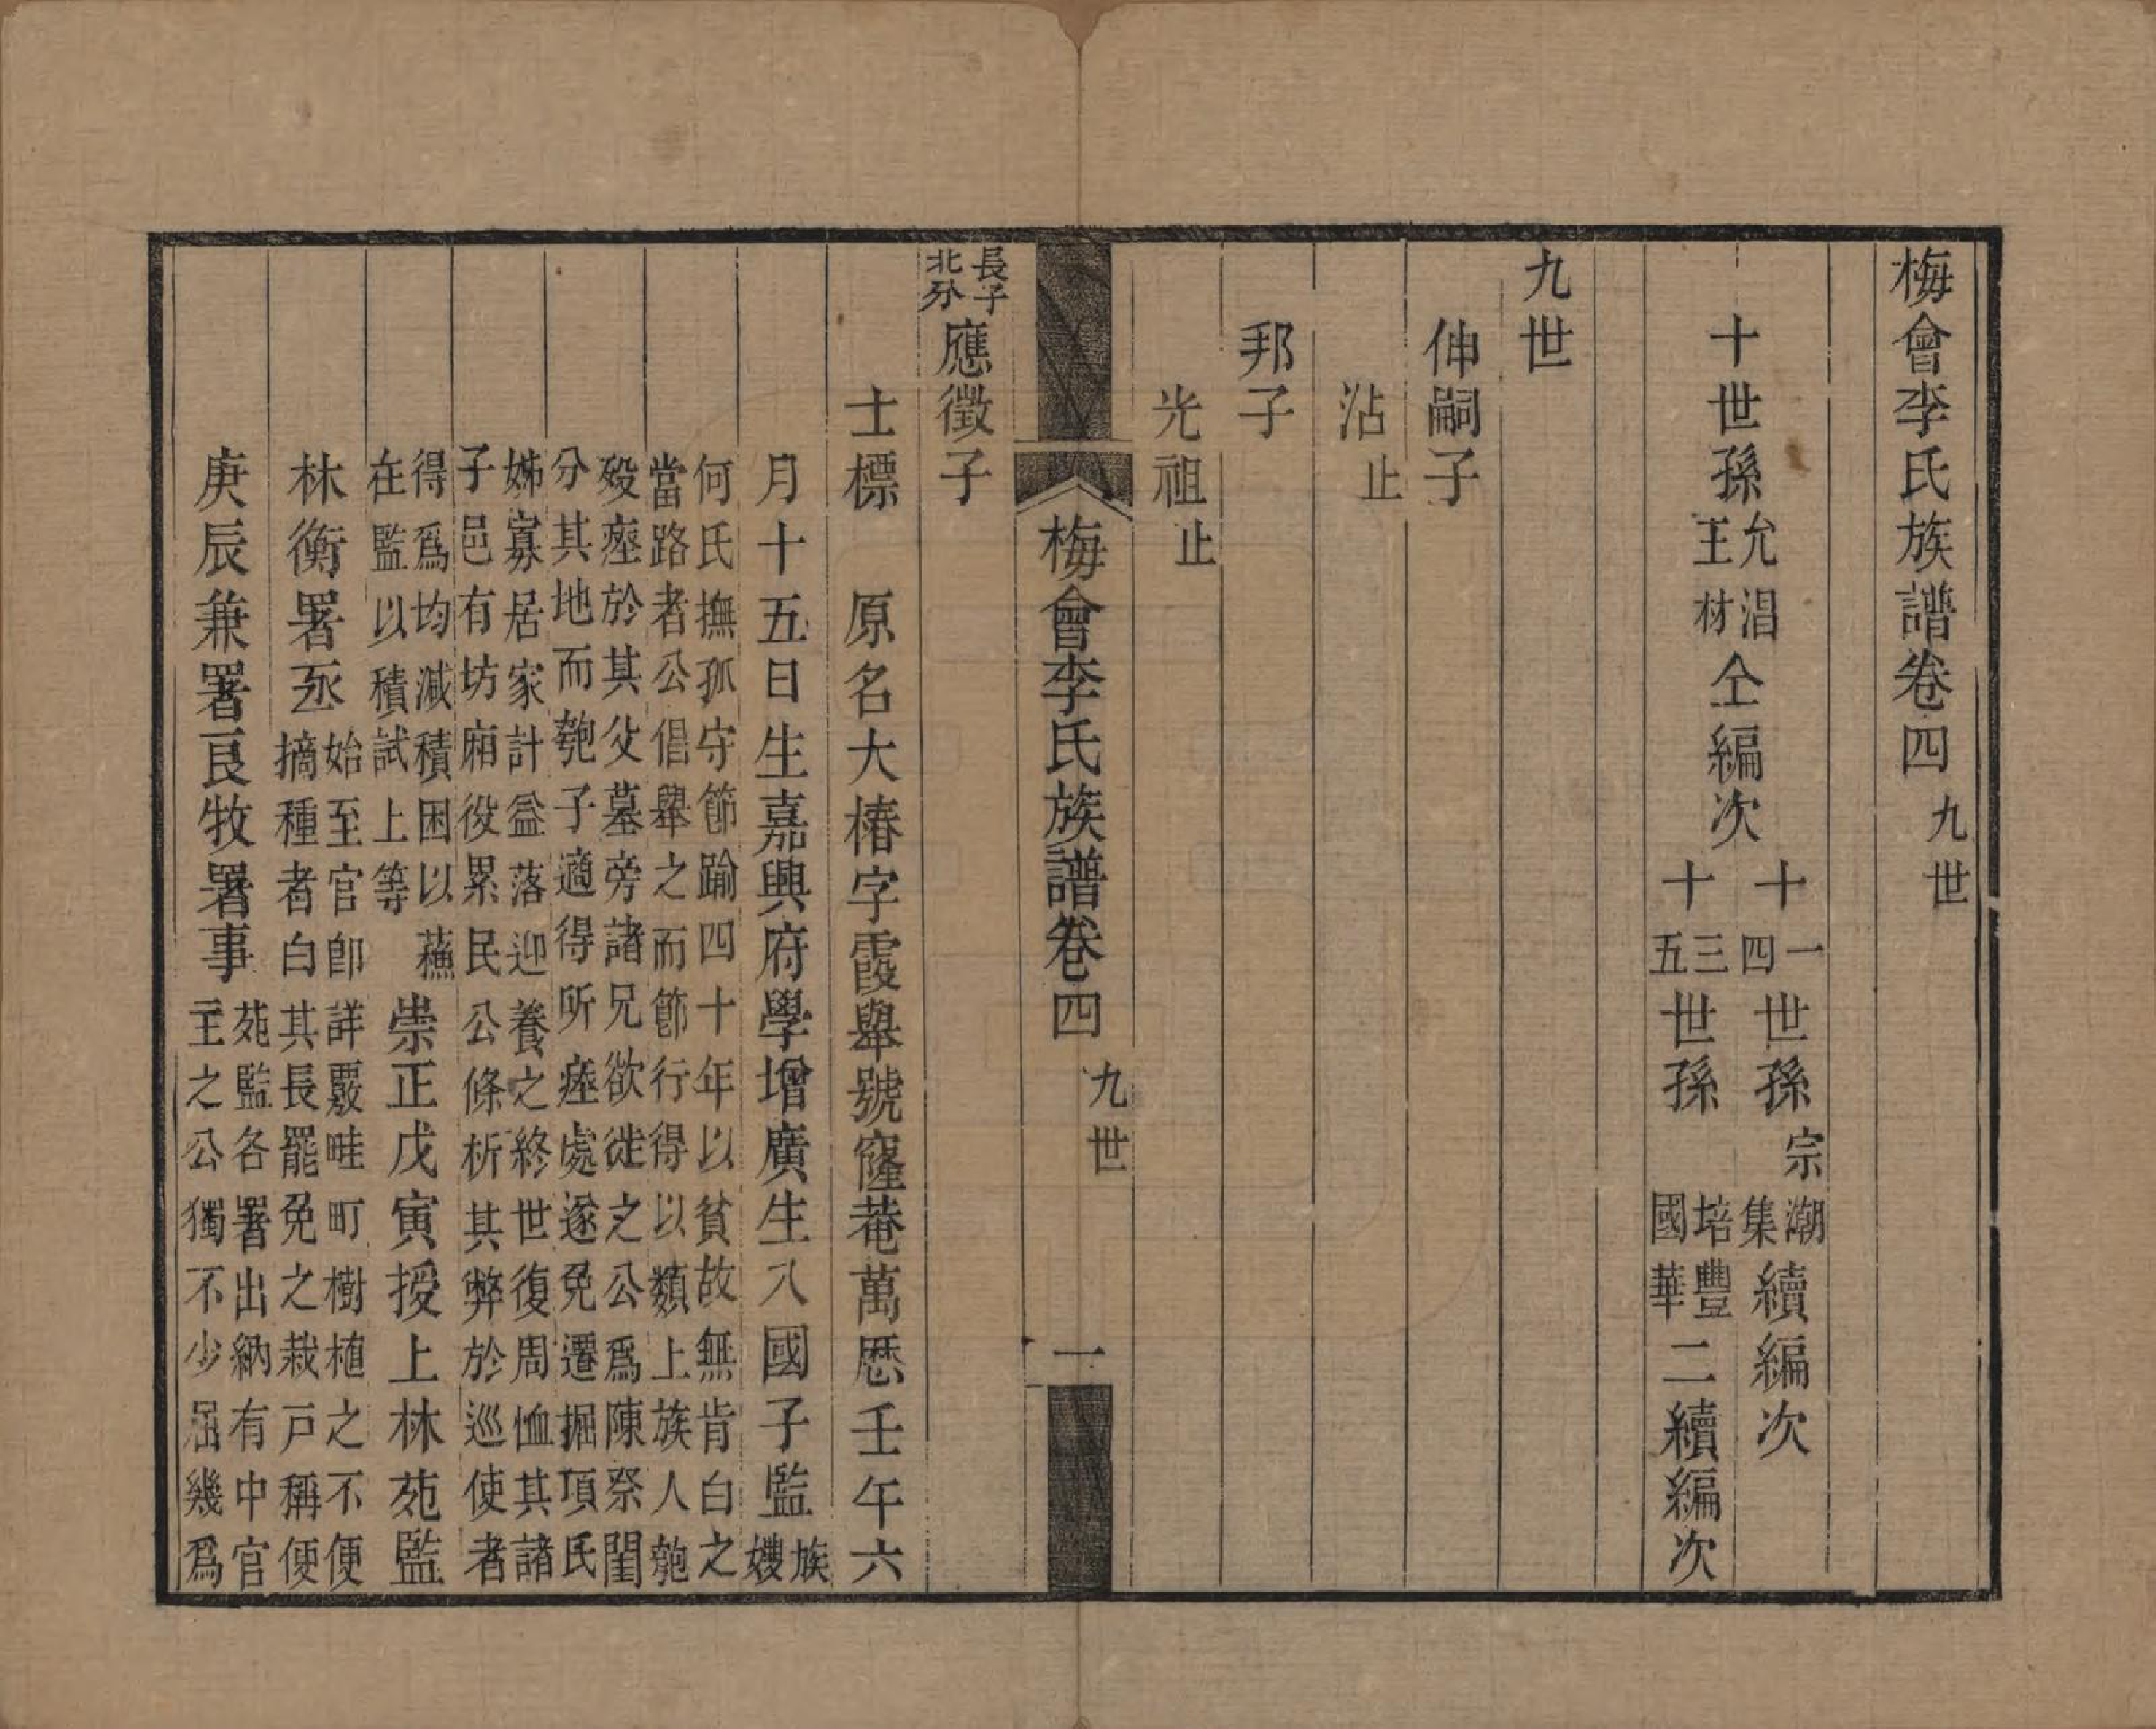 梅會李氏族譜卷四 九世
十世孫允淐王材仝編次 十一十四世孫宗潮集續編次
十三十五世孫培豐國華二續編次
九世
伸嗣子
沾止
邦子
光祖止
梅會李氏族譜卷四 九世 一
長子北分應徵子
士標 原名大椿字霞舉號窿菴萬厯壬午六
月十五日生嘉興府學增廣生入國子監族嫂
何氏撫孤守節踰四十年以貧故無肯白之
當路者公倡舉之而節行得以類上族人匏
殁瘞於其父墓旁諸兄欲徙之公爲陳祭閨
分其地而匏子適得所瘞處遂免遷掘項氏
姊寡居家計益落迎養之終世復周恤其諸
子邑有坊廂役累民公條析其弊於巡使者
得爲均減積困以蘓
在監以積試上等
崇正戊寅授上林苑監
林衡署丞始至官卽詳覈畦町樹植之不便
摘種者白其長罷免之栽戸稱便
庚辰兼署良牧署事苑監各署出納有中官
主之公獨不少屈幾爲